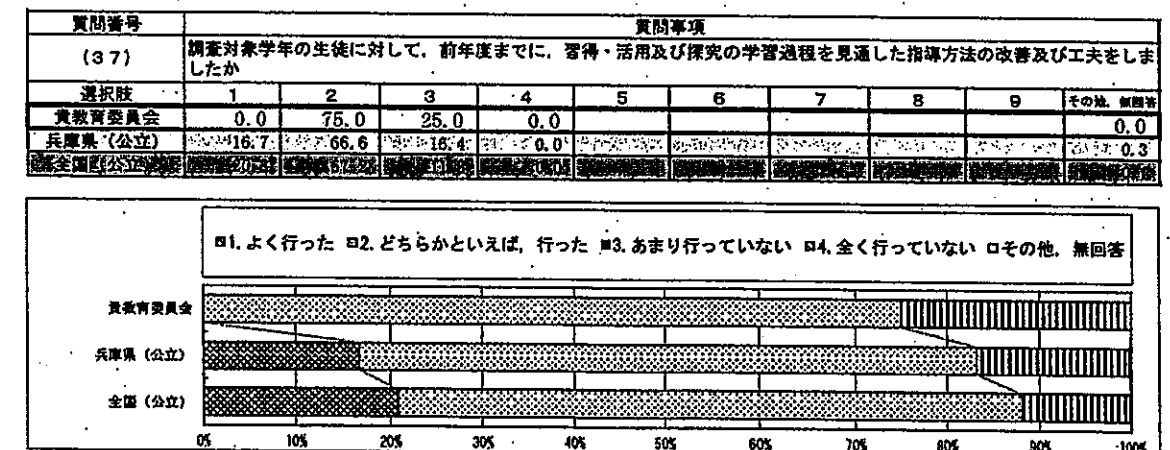 質問番号 質問事項
(37) 調査対象学年の生徒に対して，前年度までに，習得・活用及び探究の学習過程を見通した指導方法の改善及び工夫をしま
したか
選択肢 1 2 3 4 5 6 7 8 9 その他，無回答
貴教育委員会 0.0 75.0 25.0 0.0 0.0
兵庫県（公立） 16.7 66.6 16.4 0.0 0.3
全国（公立）
1.よく行った 2.どちらかといえば，行った 3.あまり行っていない 4.全く行っていない その他，無回答
貴教育委員会
兵庫県（公立）
全国（公立）
0% 10% 20% 30% 40% 50% 60% 70% 80% 90% 100%